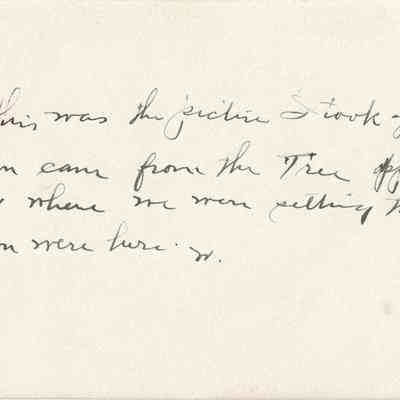 This was the picture I took
came from the Tree
where we were setting
were here.